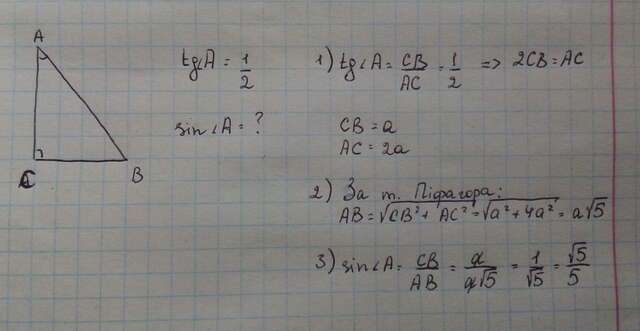 A
C
B
tg∠A = 1/2
sin∠A = ?
1) tg∠A = CB/AC = 1/2 => 2CB = AC
CB = a
AC = 2a
2) За т. Піфагора:
AB = √(CB² + AC²) = √(a² + 4a²) = a√5
3) sin∠A = CB/AB = a/(a√5) = 1/√5 = √5/5